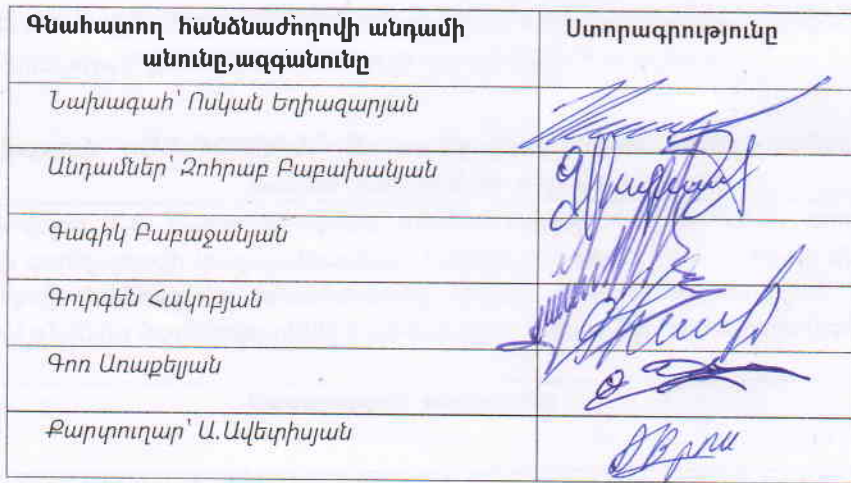 Գնահատող հանձնաժողովի անդամի
անունը,ազգանունը
Ստորագրությունը
Նախագահ՝ Ոսկան Եղիազարյան
Անդամներ՝ Զոհրաբ Բաբախանյան
Գագիկ Բաբաջանյան
Գուրգեն Հակոբյան
Գոռ Առաքելյան
Քարտուղար՝ Ա.Ավետիսյան